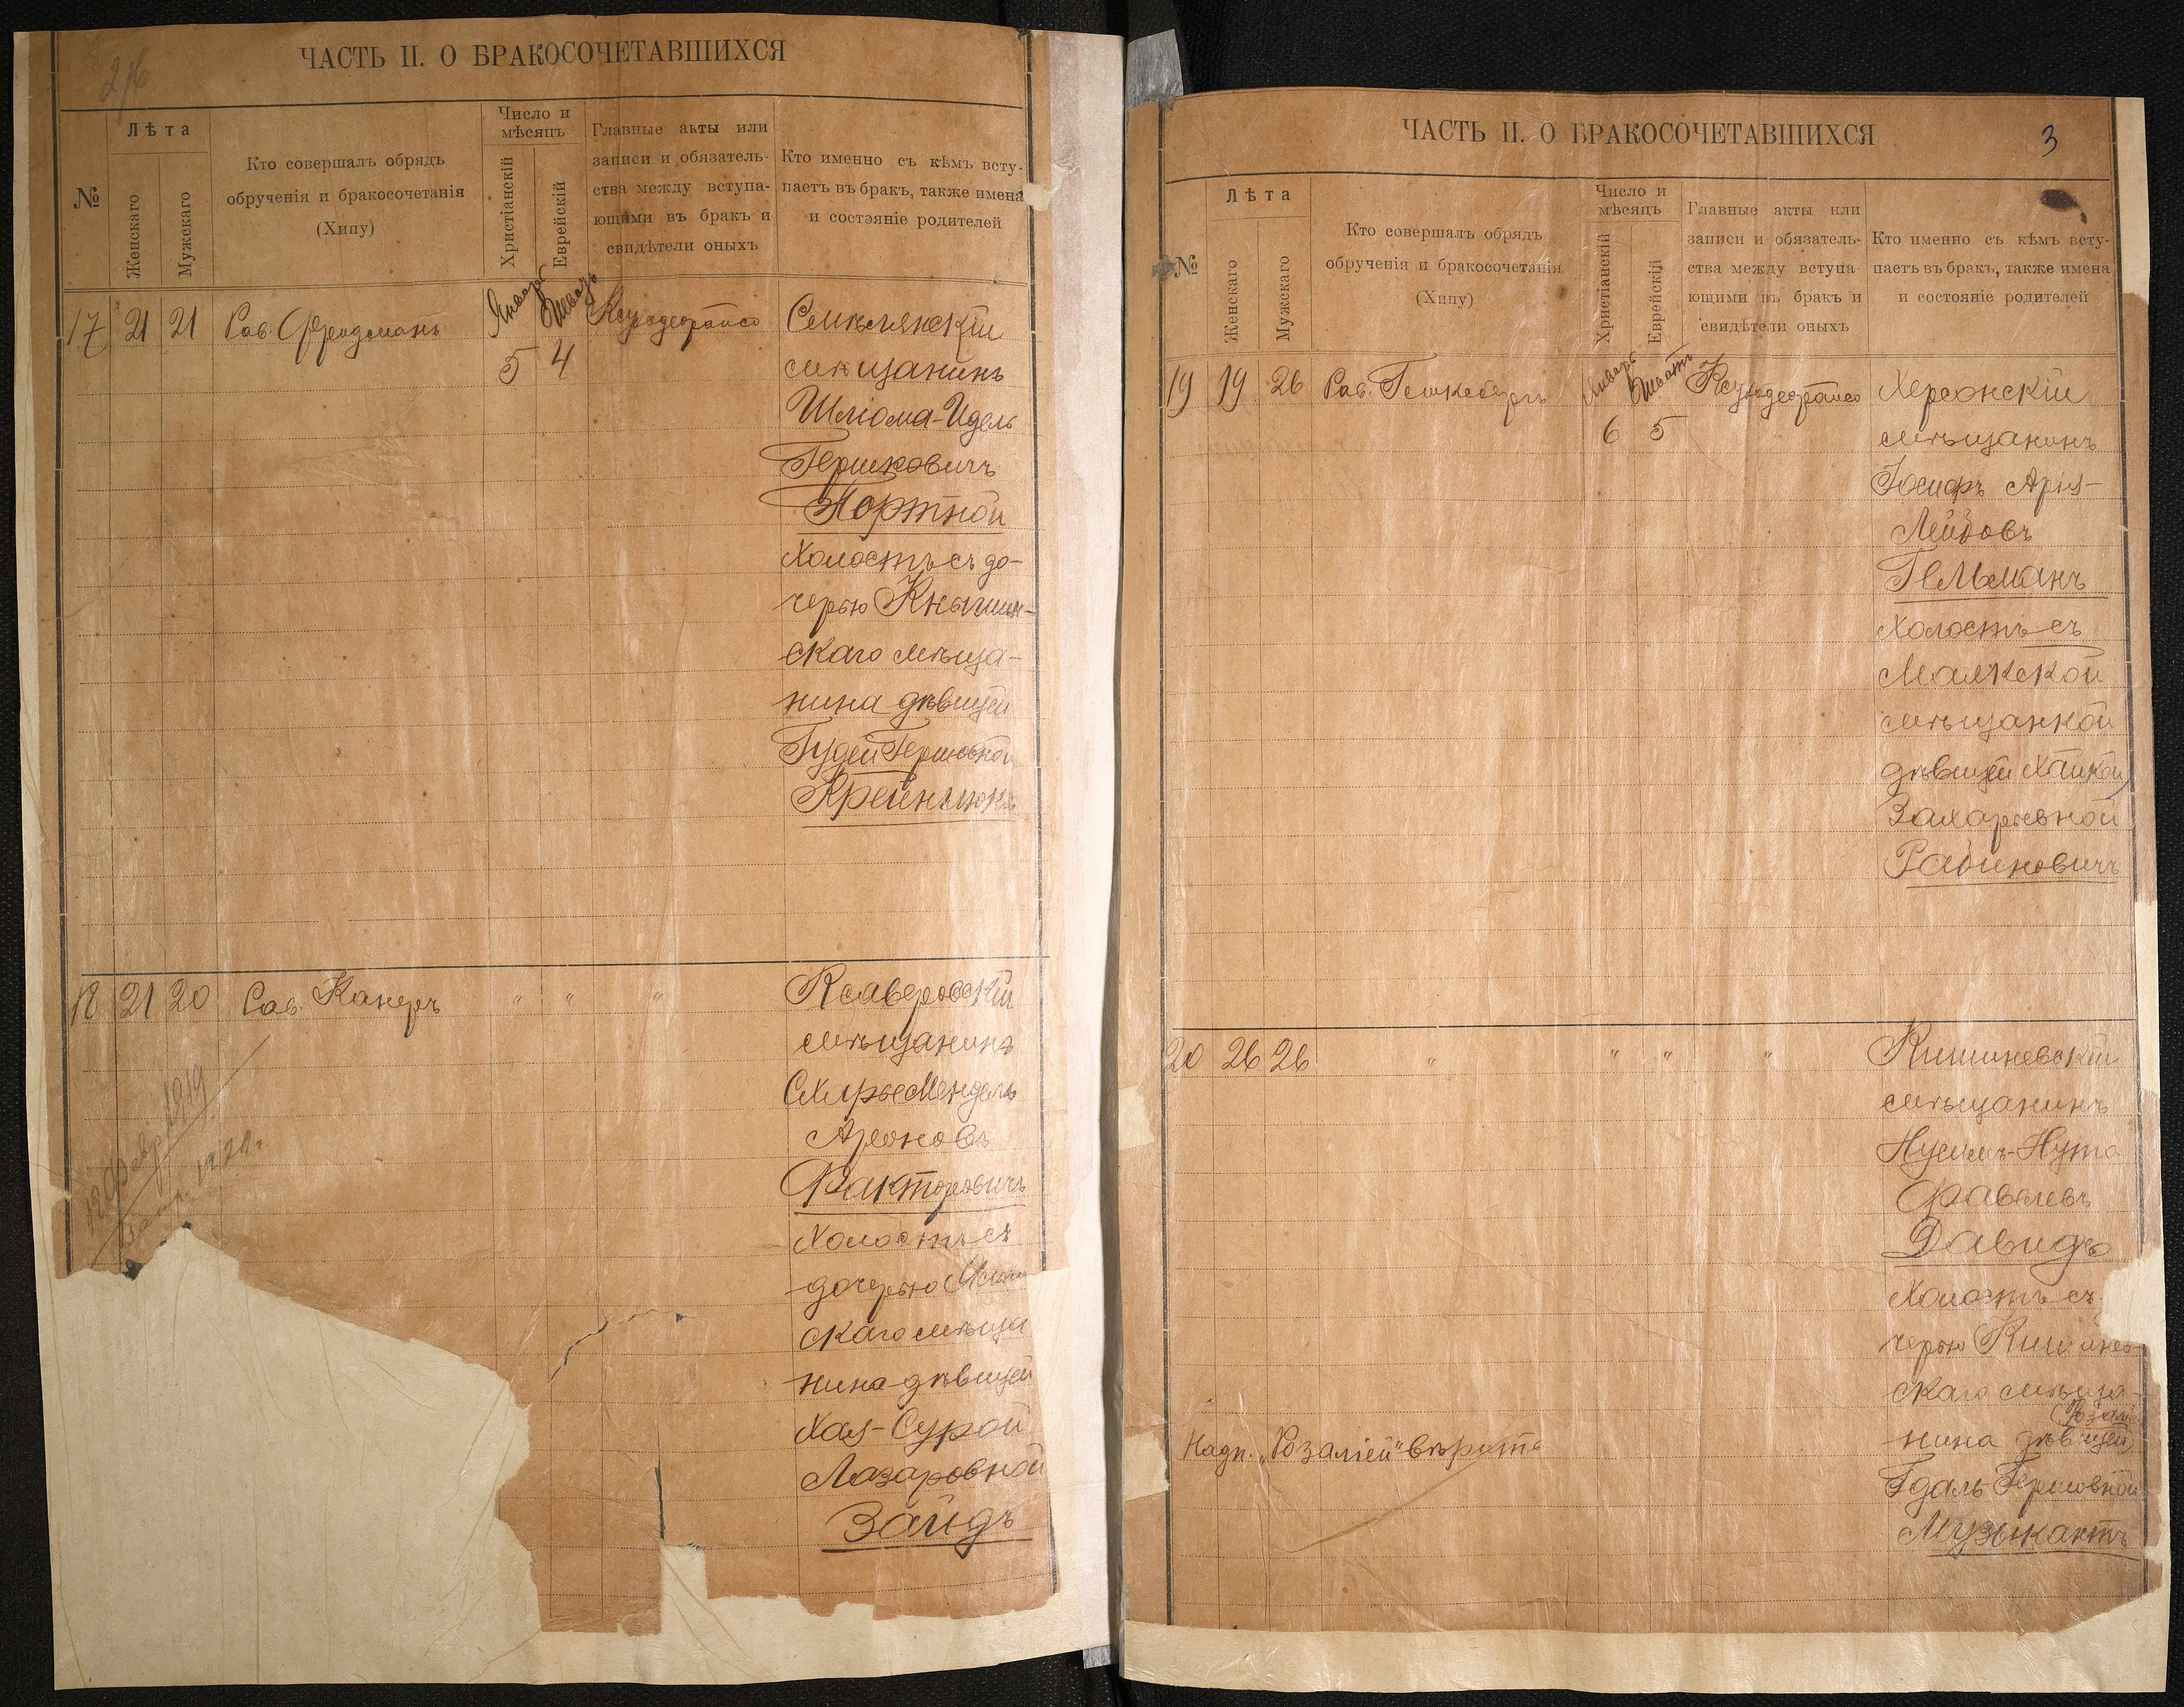 ЧАСТЬ II. О БРАКОСОЧЕТАВШИХСЯ
№
Лѣта
Женскаго
Мужскаго
Кто совершалъ обрядъ
обрученія и бракосочетанія
(Хипу)
Число и
мѣсяцъ
Христіанскій
Еврейскій
Главные акты или
записи и обязатель-
ства между вступа-
ющими въ бракъ и
свидѣтели оныхъ
Кто именно съ кѣмъ всту-
паетъ въ бракъ, также имена
и состояніе родителей
17 21 21 Рав. Фрейдманъ
Январь
5 4
мѣщанинъ
Шлiома-Идель
Гершковичъ
Портной
холостъ съ до-
черью
скаго мѣща-
нина дѣвицей
Гершковной
18 21 20 Рав. Канеръ " " "
Ксаверовскій
мѣщанинъ
Ароновъ
Факторовичъ
холостъ съ
дочерью
скаго мѣща
нина дѣвицей
Хая-Сурой
Лазаровной
Зайдъ
ЧАСТЬ II. О БРАКОСОЧЕТАВШИХСЯ
3
№
Лѣта
Женскаго
Мужскаго
Кто совершалъ обрядъ
обрученія и бракосочетанія
(Хипу)
Число и
мѣсяцъ
Христіанскій
Еврейскій
Главные акты или
записи и обязатель-
ства между вступа
ющими въ бракъ и
свидѣтели оныхъ
Кто именно съ кѣмъ всту-
паетъ въ бракъ, также имена
и состояніе родителей
19 19 26 Рав.
Январь Шватъ
6 5
Херсонскій
мѣщанинъ
Іосифъ Арія-
Лейбовъ
Гельманъ
холостъ съ
мѣщанкой
дѣвицей Хайкой
Захарьевной
Рабиновичъ
20 26 26 " " " "
Кишиневскій
мѣщанинъ
Нусимъ-Нута
Давидъ
холостъ съ
черью Кишинев-
скаго мѣща-
нина дѣвицей
Гершовной
Музыкантъ
Надп. „Розаліей" вѣрить